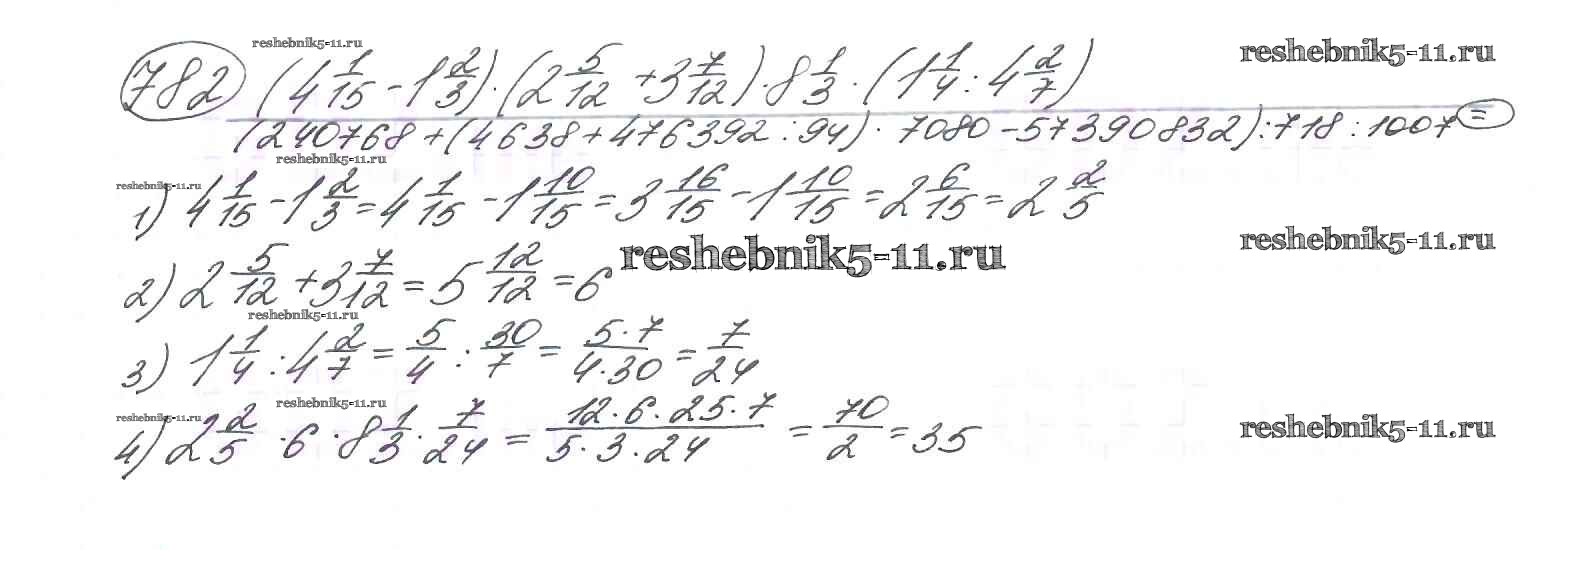 reshebnik5-11.ru
reshebnik5-11.ru
782 (4 1/15 - 1 2/3) · (2 5/12 + 3 7/12) · 8 1/3 · (1 1/4 : 4 2/7)
(240768 + (4638 + 476392 : 94) · 7080 - 57390832) : 718 : 1007 =
reshebnik5-11.ru
reshebnik5-11.ru
1) 4 1/15 - 1 2/3 = 4 1/15 - 1 10/15 = 3 16/15 - 1 10/15 = 2 6/15 = 2 2/5
reshebnik5-11.ru
reshebnik5-11.ru
2) 2 5/12 + 3 7/12 = 5 12/12 = 6
reshebnik5-11.ru
3) 1 1/4 : 4 2/7 = 5/4 : 30/7 = 5·7/4·30 = 7/24
reshebnik5-11.ru
reshebnik5-11.ru
4) 2 2/5 · 6 · 8 1/3 · 7/24 = 12·6·25·7/5·3·24 = 70/2 = 35
reshebnik5-11.ru